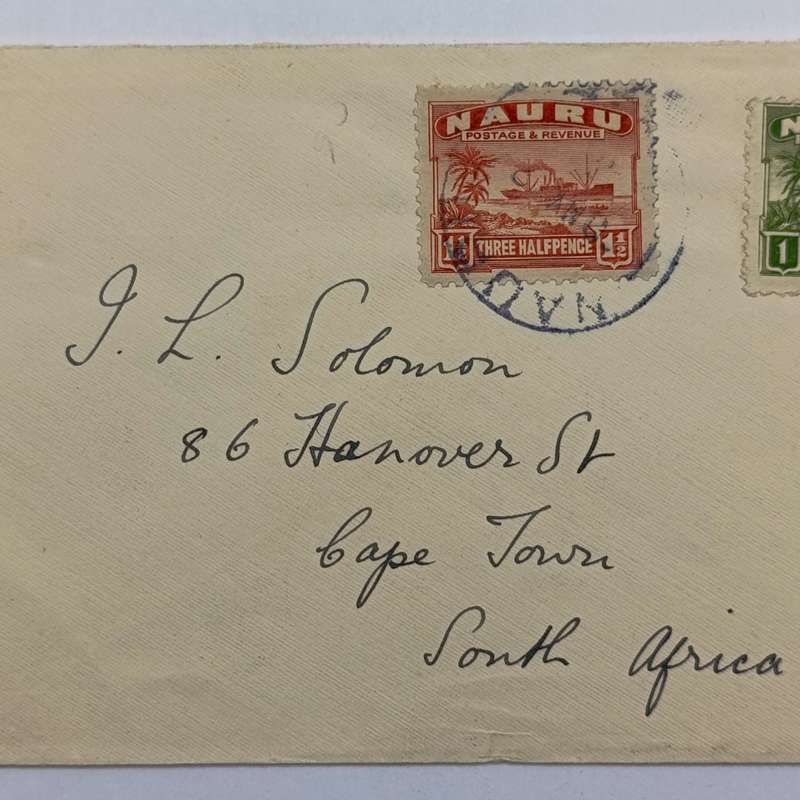 NAURU
POSTAGE & REVENUE
1½ THREE HALFPENCE 1½
NAU
N
1
I. L. Solomon
86 Hanover St
Cape Town
South Africa